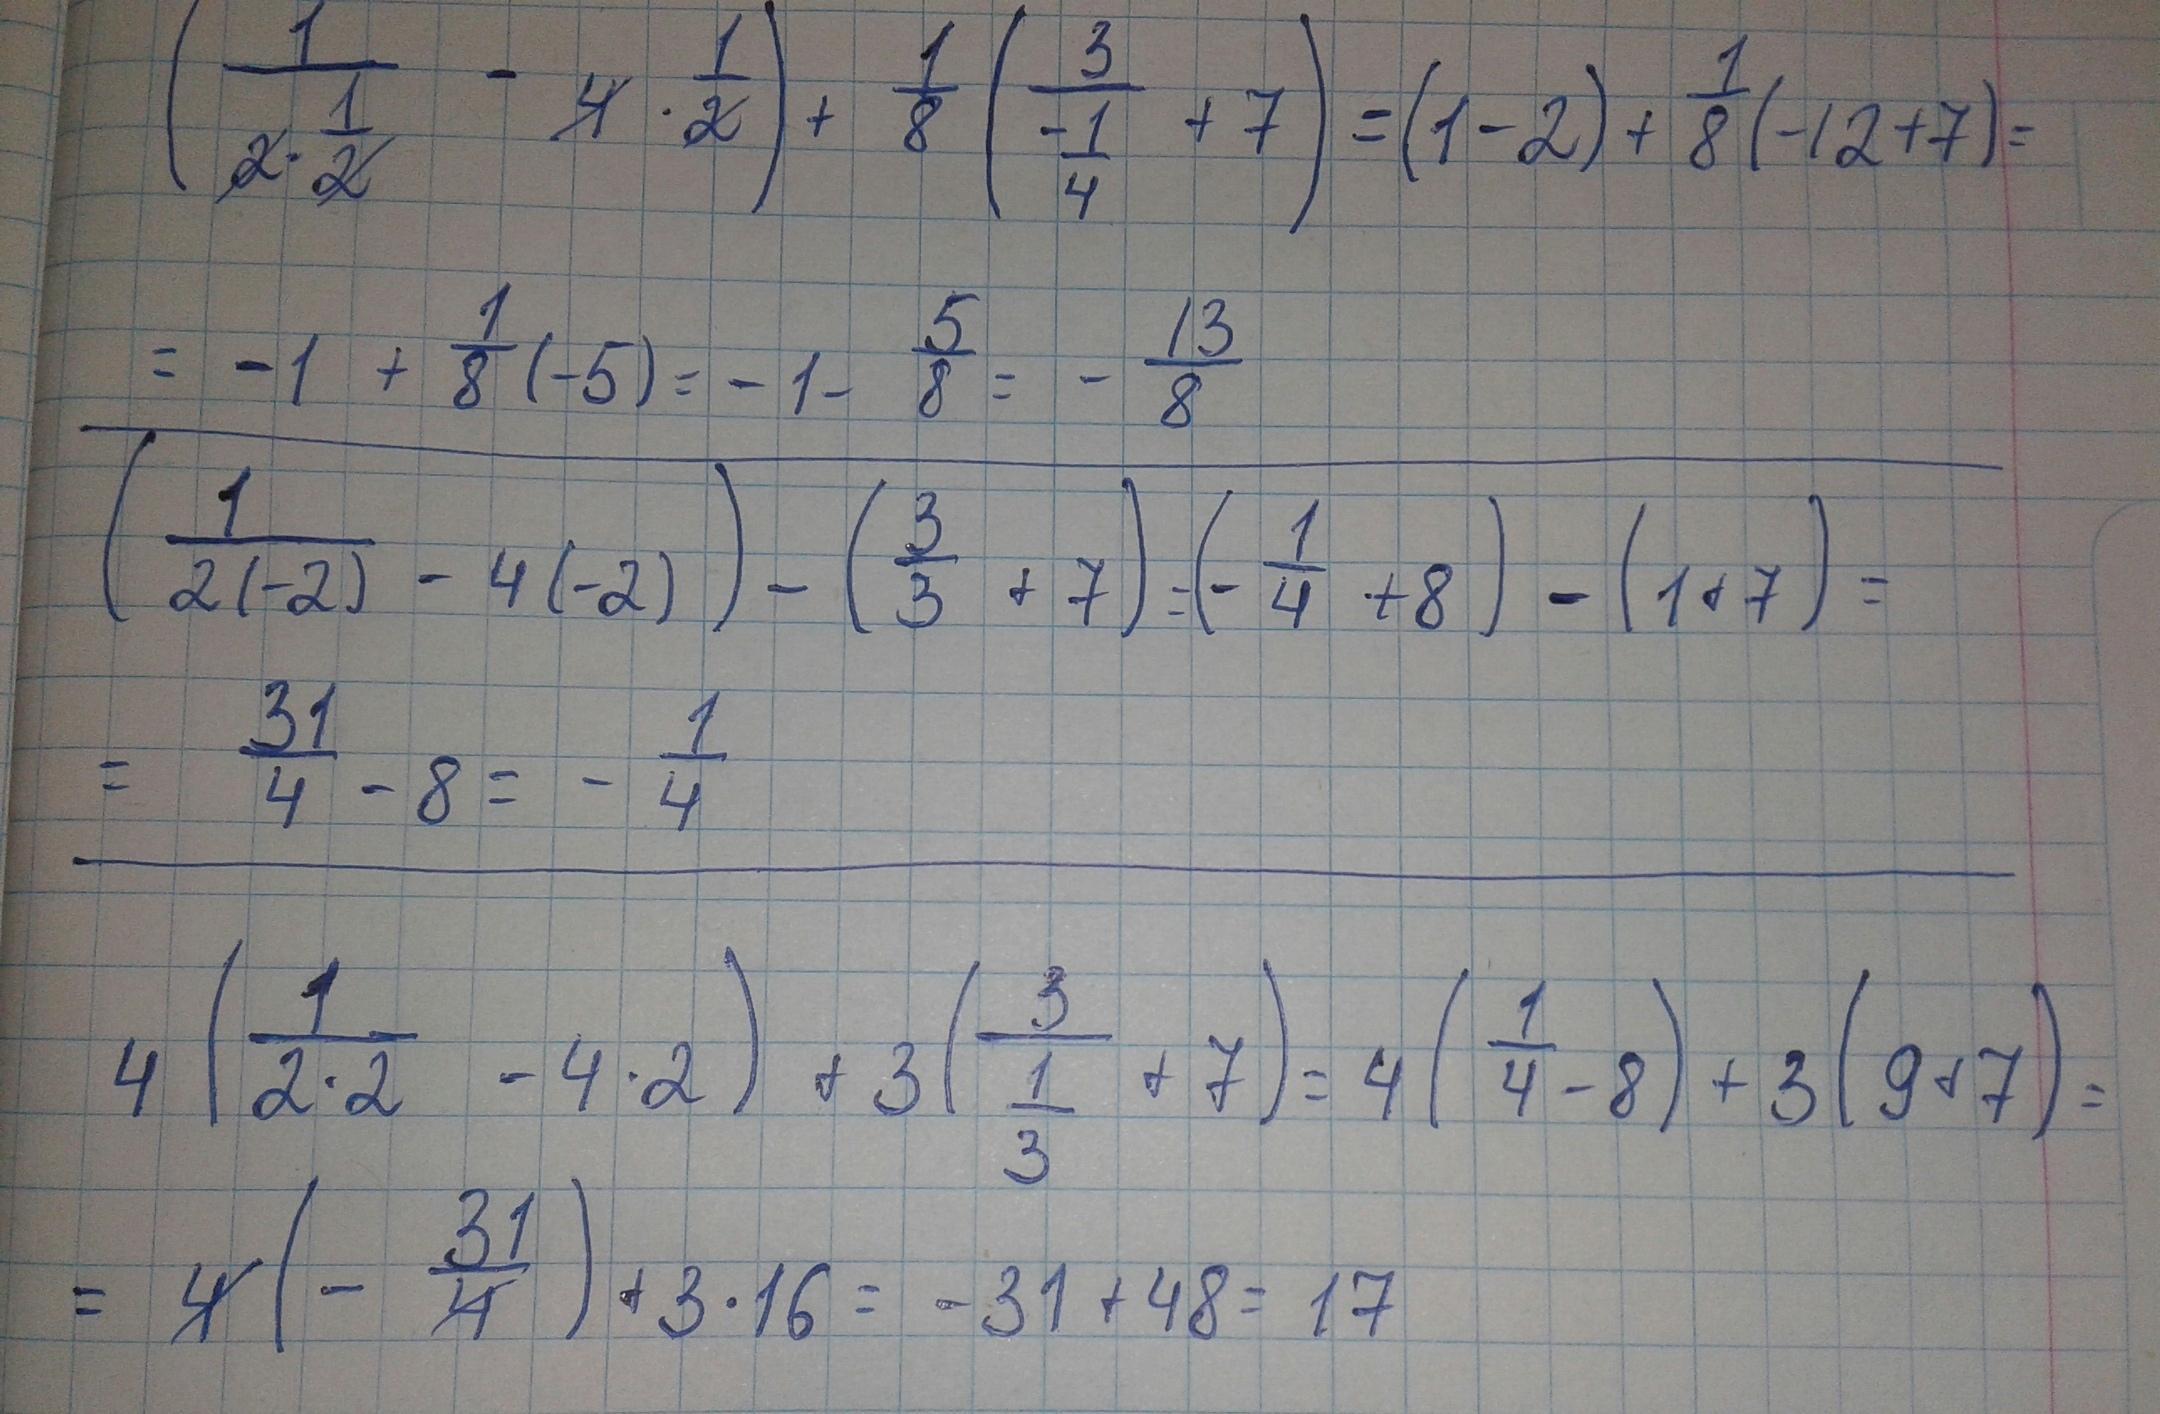 (1/(2·1/2) - 4·1/2) + 1/8(3/(-1/4) + 7) = (1-2) + 1/8(-12+7) =
= -1 + 1/8(-5) = -1 - 5/8 = - 13/8
(1/(2(-2)) - 4(-2)) - (3/3 + 7) = (-1/4 + 8) - (1+7) =
= 31/4 - 8 = - 1/4
4(1/(2·2) - 4·2) + 3(3/(1/3) + 7) = 4(1/4 - 8) + 3(9+7) =
= 4(- 31/4) + 3·16 = -31 + 48 = 17